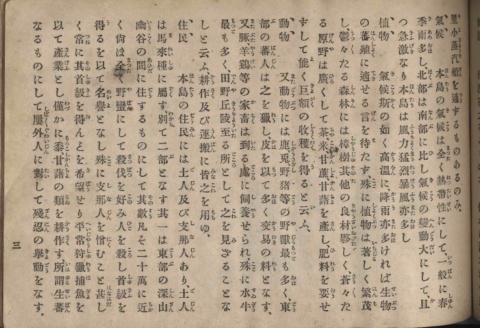 里小蒸汽船を通するものあるのみ、
氣候　本島の氣候は全く熱帶性にして、一般に春
季雨多し、北部は南部に比し氣候の變動大にして、且
つ急激なり本島は風力猛烈暴風亦多し
植物　氣候斯の如く高温に、降雨亦多ければ生物
の蕃殖に適せる言を待たす、殊に植物は著しく繁茂
し鬱々たる森林には樟樹其他の良材夥しく蒼々た
る原野は廣くして茶米甘蔗甘藷を產し肥料を要せ
すして能く巨額の收穫を得ると云ふ、
動物　又動物には鹿兎野猪等の野獸最も多く、東
部の蕃人は之を獵し、皮を以て多く交易の料となす、
又豚羊鷄等の家畜は到る處に飼養せられ殊に水牛
最も多く、田野丘陵至る所として之を見ざることな
しと云ふ耕作及び運搬に皆之を用ゆ、
住民　本島の住民には土人及び支那人あり、土人
は馬來種に屬す別て二部となす其一は東部の深山
幽谷の間に住するものにして其數凡そ二十萬に近
く尙ほ全く野蠻にして殺伐を好み人を殺し首級を
得るを以て名譽となし殊に支那人を憎むこと甚し
く常に其首級を得んとを希望せり平常狩獵捕魚を
以て產業とし僅かに黍甘藷の類を耕作す所謂生蕃
なるものにして屋外人に對して殘忍の擧動をなす、
三